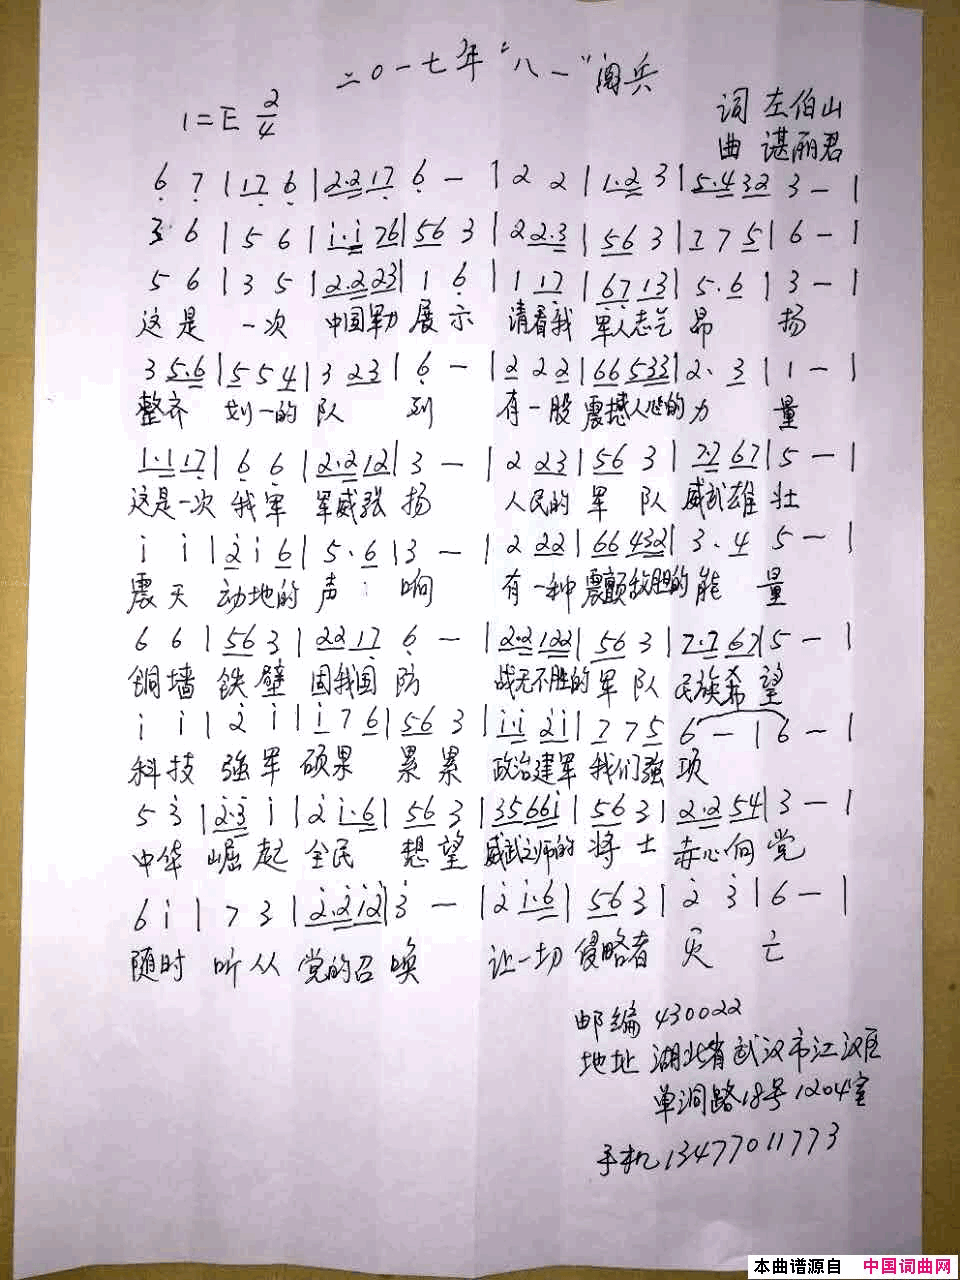 二〇一七年“八一”阅兵
1=E 2/4
词 左伯山
曲 谌丽君
6 7 | 17 6 | 2·2 17 6 — | 2 2 | 1·2 3 | 5·4 32 3 — |
3 6 | 5 6 | i·i 76 | 56 3 | 2 2·3 | 56 3 | 7 7 5 | 6 — |
5 6 | 3 5 | 2·2 23 | 1 6 | 1 17 | 67 13 | 5·6 | 3 — |
这是 一次 中国军力 展示 请看我 军人志气 昂 扬
3 5·6 | 5 5 4 | 3 23 | 6 — | 2 2 2 | 66 533 | 2· 3 | 1 — |
整齐 划一的 队 列 有一股 震撼人心的 力 量
1·1 17 | 6 6 | 2·2 12 | 3 — | 2 23 | 56 3 | 7·7 67 | 5 — |
这是一次 我军 军威张 扬 人民的 军 队 威武雄 壮
i i | 2 i 6 | 5·6 | 3 — | 2 22 | 66 432 | 3·4 5 — |
震天 动地的 声 响 有一种 震颤敌胆的 能 量
6 6 | 56 3 | 22 17 6 — | 2·2 122 | 56 3 | 7·7 67 | 5 — |
铜墙 铁壁 固我国 防 战无不胜的 军 队 民族希 望
i i | 2 i | i 7 6 | 56 3 | i·i 2i | 7 7 5 6 — | 6 — |
科技 强军 硕果 累累 政治建军 我们强 项
5 3 | 2·3 i | 2 i·6 | 56 3 | 3566i | 56 3 | 2·2 54 | 3 — |
中华 崛起 全民 想望 威武之师的 将士 赤心向 党
6 i | 7 3 | 2·2 12 | 3 — | 2 i·6 | 56 3 | 2 3 | 6 — |
随时 听从 党的召 唤 让一切 侵略者 灭 亡
邮编 430022
地址 湖北省武汉市江汉区
单洞路18号1204室
手机13477011773
本曲谱源自 中国词曲网